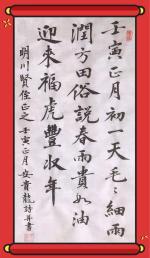 壬寅正月初一天毛毛細雨
潤方田俗説春雨貴如油
迎來福虎豐収年
明川賢侄正之 壬寅正月 安貴龍詩并書